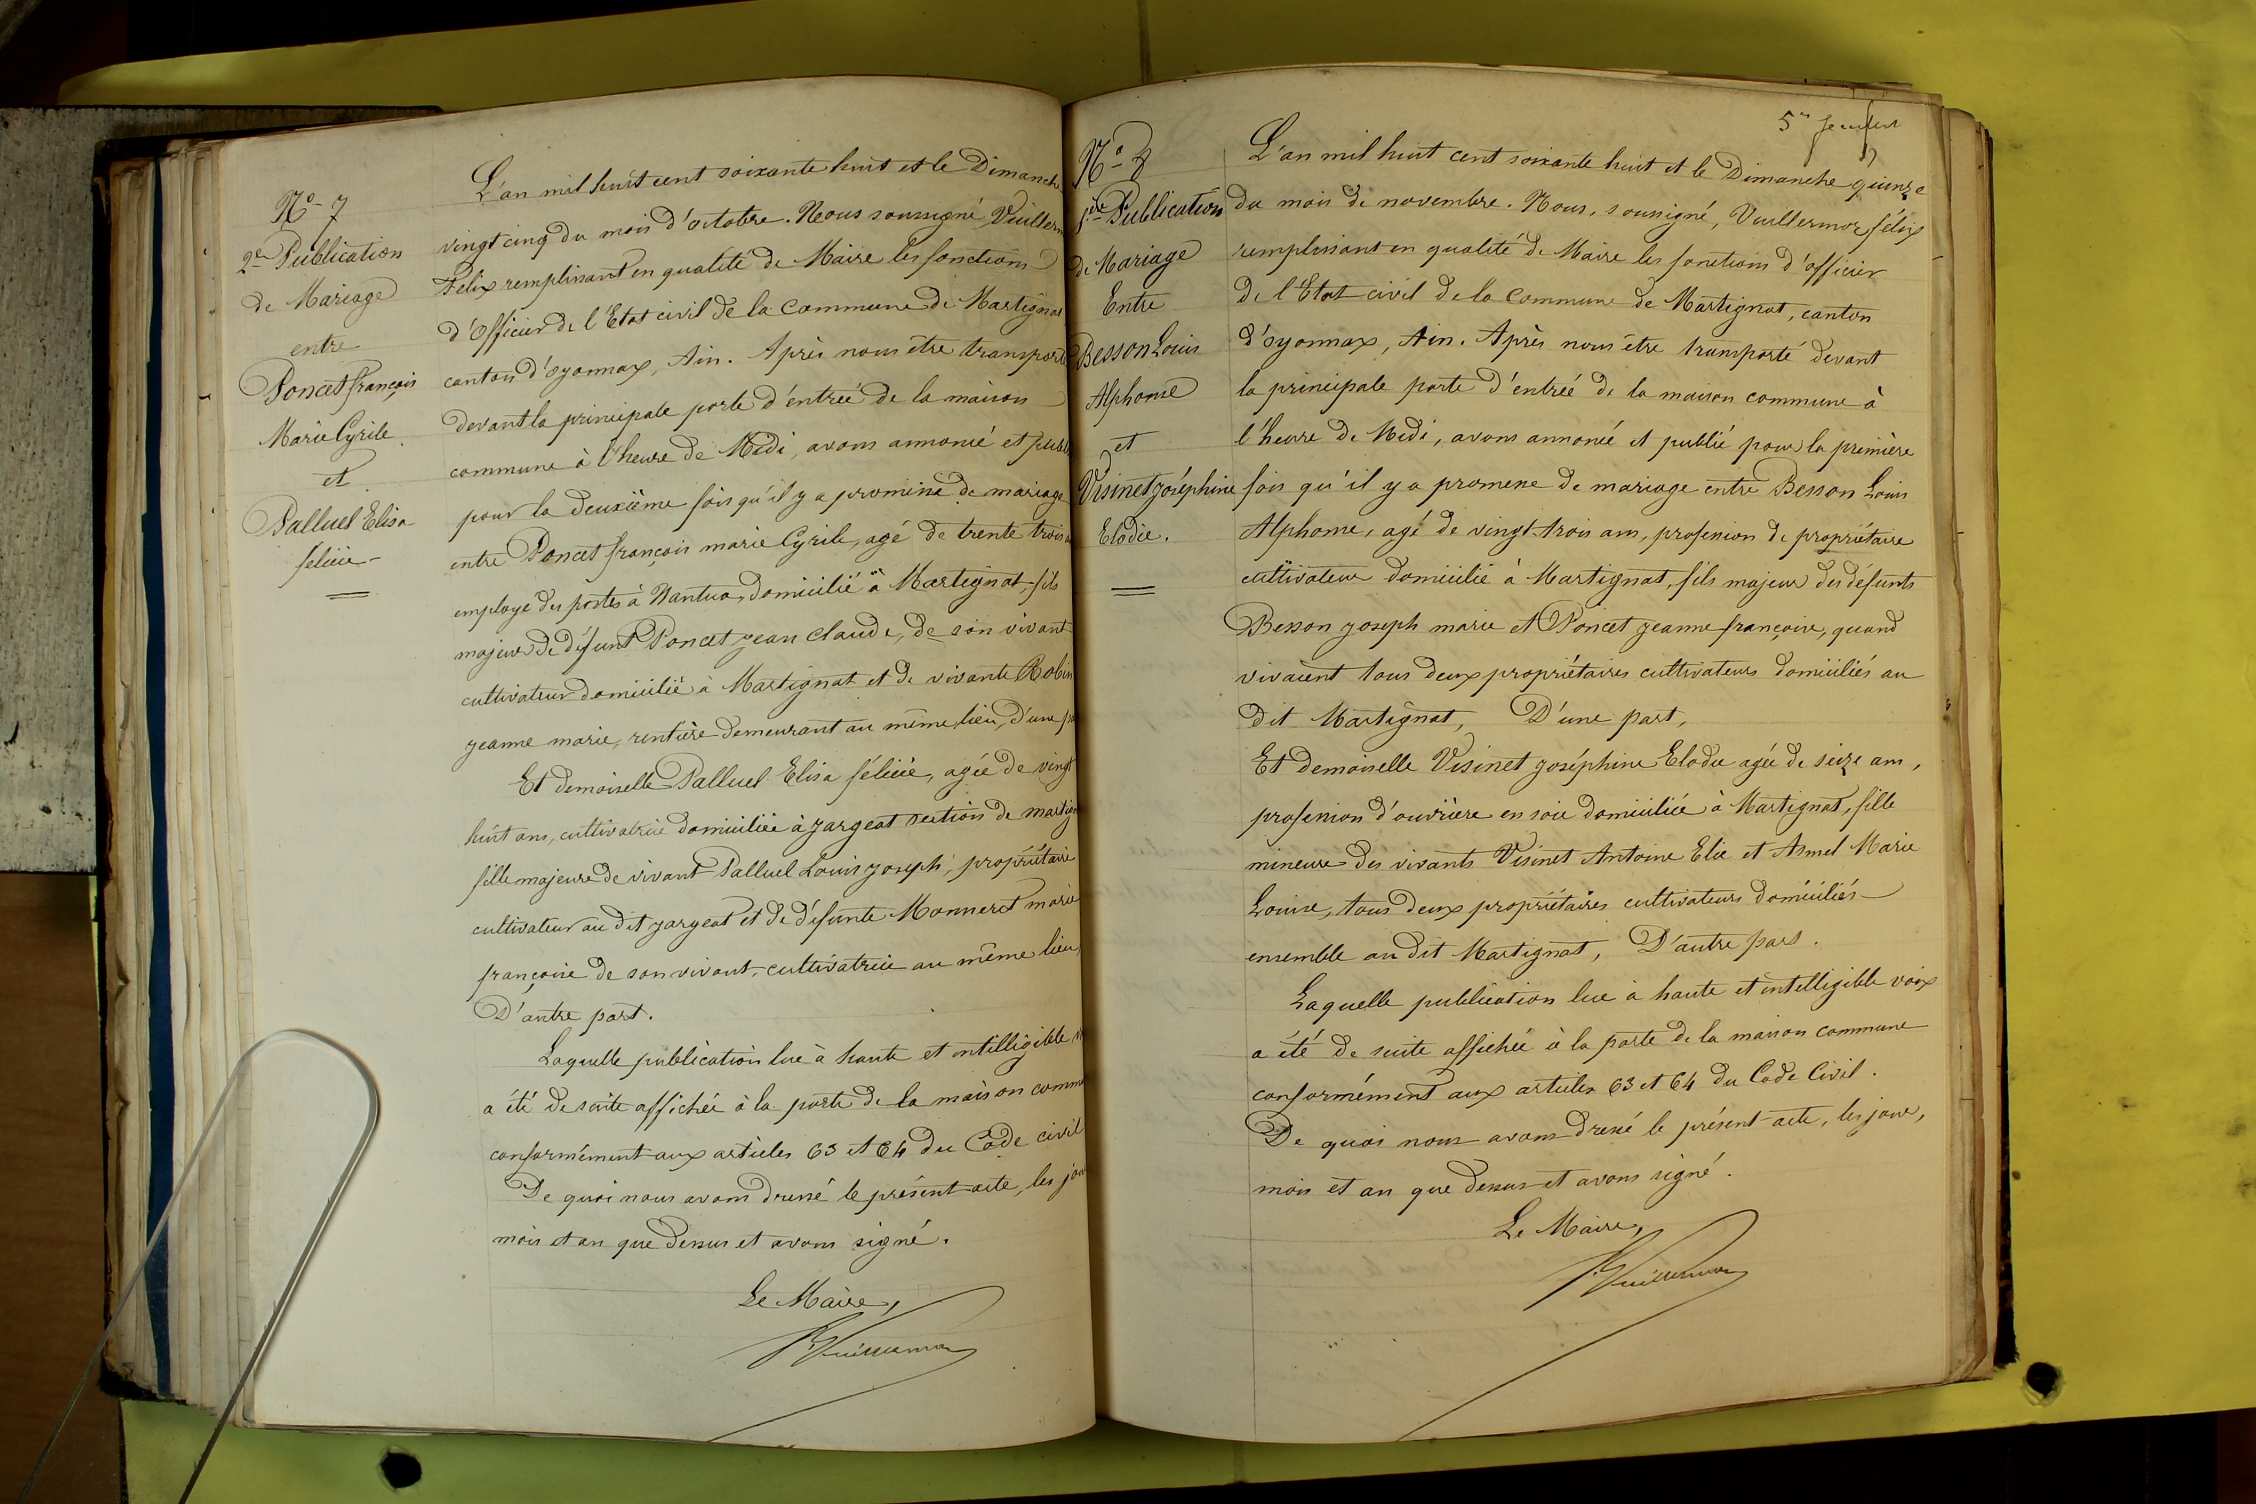 N° 7
2e Publication
de Mariage
entre
Poncet françois
Marie Cyrile
et
Palluel Elisa
félicie
L'an mil huit cent soixante huit et le Dimanche
vingt cinq du mois d'octobre. Nous soussigné, Vuillerm
Félix remplissant en qualité de Maire les fonctions
d'Officier de l'Etat civil de la commune de Martignat
canton d'oyonnax, Ain. Après nous être transporté
devant la principale porte d'entrée de la maison
commune à l'heure de Midi, avons annoncé et publ
pour la deuxième fois qu'il y a promesse de mariage
entre Poncet françois marie Cyrile, agé de trente trois
employé des postes à Nantua, domicilié à Martignat, fils
majeur de défunt Poncet jean claude, de son vivant
cultivateur domicilié à Martignat et de vivante Robin
jeanne marie, rentière demeurant au même lieu, d'une
Et demoiselle Palluel Elisa félicie, agée de vingt
huit ans, cultivatrice domiciliée à jargeat section de martign
fille majeure de vivant Palluel Louis joseph, propriétaire
cultivateur au dit jargeat et de défunte Monneret marie
françoise de son vivant, cultivatrice au même lieu,
D'autre part.
Laquelle publication lue à haute et intelligible
a été de suite affichée à la porte de la maison comm
conformément aux articles 63 et 64 du Code civil
De quoi nous avons dressé le présent acte, les jou
mois et an que dessus et avons signé.
Le Maire,
Vuillermoz
5e feuillet
N° 8
1ère Publication
de Mariage
Entre
Besson Louis
Alphonse
et
Visinet joséphine
Elodie.
L'an mil huit cent soixante huit et le Dimanche quinze
du mois de novembre. Nous, soussigné, Vuillermoz félix
remplissant en qualité de Maire les fonctions d'officier
de l'Etat civil de la commune de Martignat, canton
d'oyonnax, Ain. Après nous être transporté devant
la principale porte d'entrée de la maison commune à
l'heure de Midi, avons annoncé et publié pour la première
fois qu'il y a promesse de mariage entre Besson Louis
Alphonse, agé de vingt-trois ans, profession de propriétaire
cultivateur domicilié à Martignat, fils majeur des défunts
Besson joseph marie et Poncet jeanne françoise, quand
vivaient tous deux propriétaires cultivateurs domiciliés au
dit Martignat, D'une part,
Et demoiselle Visinet joséphine Elodie agée de seize ans,
profession d'ouvrière en soie domiciliée à Martignat, fille
mineure des vivants Visinet Antoine Elie et Asmel Marie
Louise, tous deux propriétaires cultivateurs domiciliés
ensemble au dit Martignat, D'autre part.
Laquelle publication lue à haute et intelligible voix
a été de suite affichée à la porte de la maison commune
conformément aux articles 63 et 64 du Code Civil.
De quoi nous avons dressé le présent acte, les jour,
mois et an que dessus et avons signé.
Le Maire,
Vuillermoz